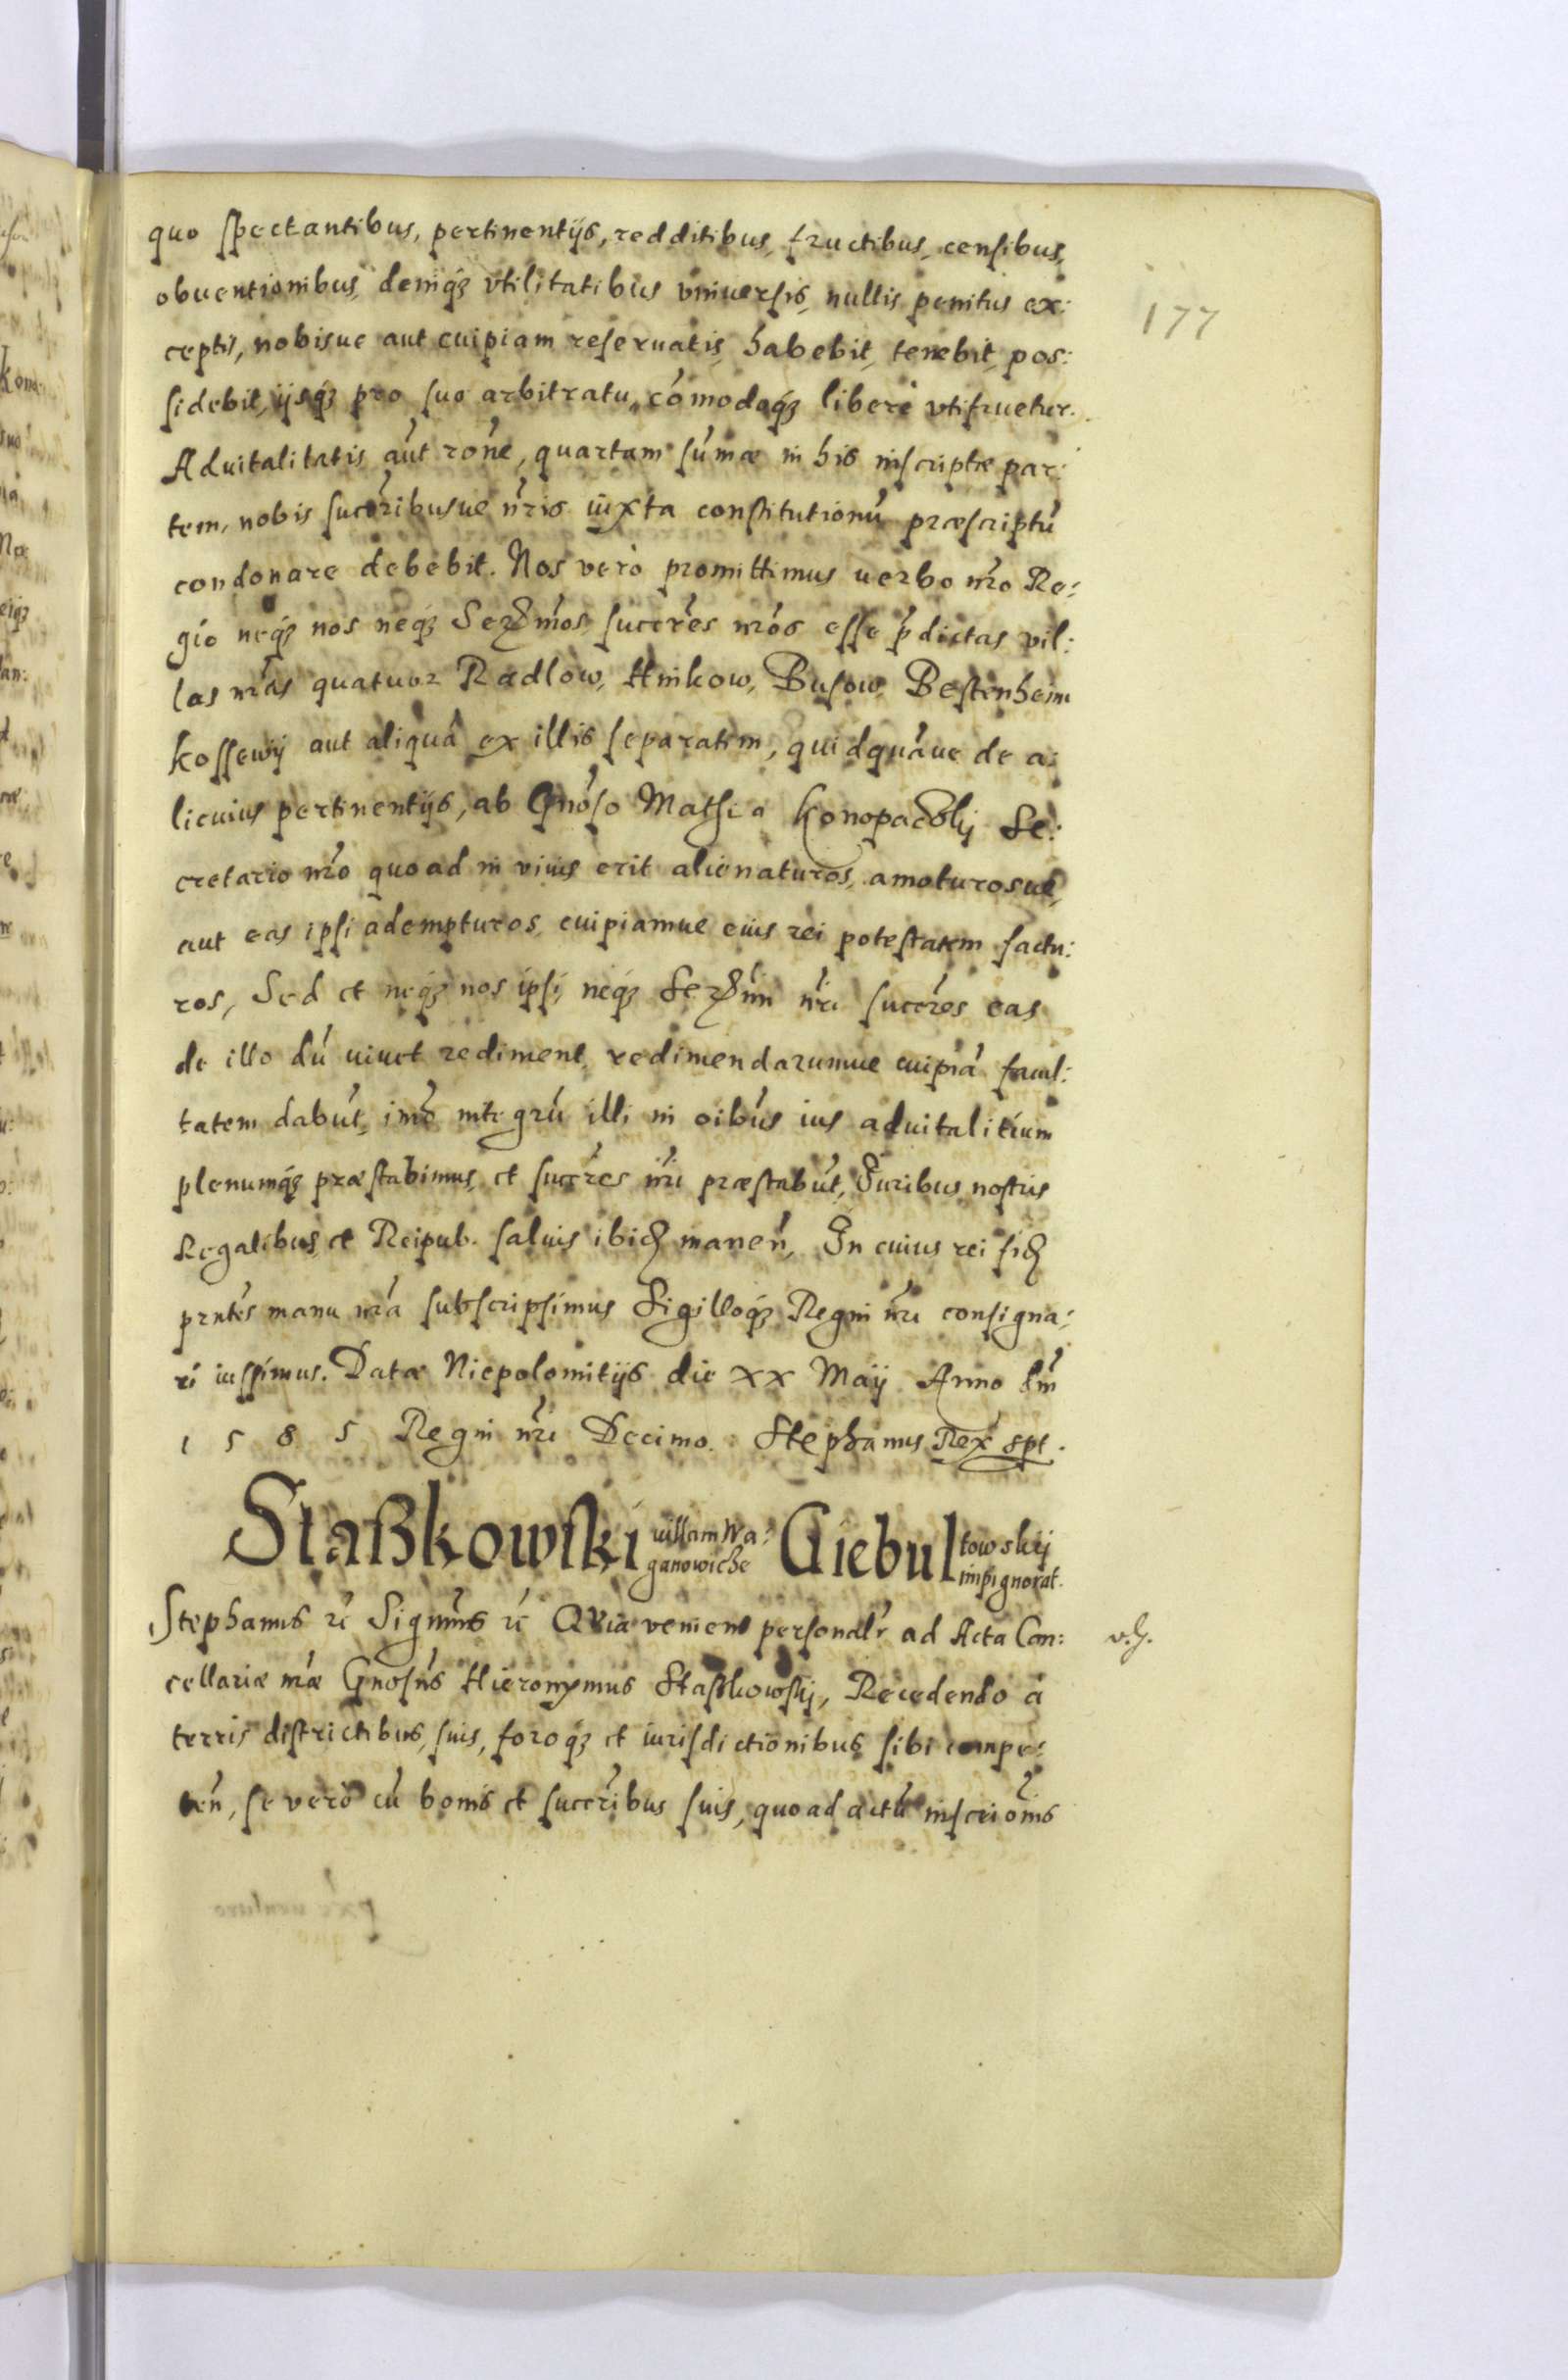 quo spectantibus, pertinentijs, redditibus, fructibus, censibus,
obuentionibus, deniq3 vtilitatibus vniuersis, nullis penitus ex:
177
ceptis, nobisue aut cuipiam reseruatis, habebit, tenebit, pos:
sidebit, ijsq3 pro suo arbitratu, cõmodoq3 liberè vtifruetur.
Aduitalitatis aũt rõne, quartam sũmæ in his inscriptæ par:
tem, nobis succr̃ibusue nr̃is iuxta constitutionũ præscriptũ
condonare debebit. Nos verò promittimus uerbo nr̃o Re:
gio neq3 nos neq3 Ser̃mos succr̃es nr̃os esse p̃dictas vil:
las nr̃as quatuor Radlow, Hnikow, Busow, Bestenheim
Kossewij aut aliquã ex illis separatim, quidquãue de a:
licuius pertinentijs, ab Gnõso Mathia Konopaczkij Se:
cretario nr̃o quoad in viuis erit alienaturos, amoturosue,
aut eas ipsi adempturos, cuipiamue eius rei potestatem factu:
ros, Sed et neq3 nos ipsi, neq3 Ser̃mi nr̃i succr̃es eas
de illo dũ viuet rediment, redimendarumue cuipiã facul:
tatem dabũt, imò integrũ illi in oĩbus ius aduitalitium
plenumq3 præstabimus, et succr̃es nr̃i præstabũt, Iuribus nostris
Regalibus, et Reipub. saluis ibid̃ maneñ, In cuius rei fid̃
prñtes manu nr̃a subscripsimus Sigilloq3 Regni nr̃i consigna:
ri iussimus. Datæ Niepolomitijs die xx Maij Anno dñi
1 5 8 5 Regni nr̃i Decimo. Stephanus Rex spt.
Staßkowski villam Wa: Giebul towskij
ganowicze impignorat.
Stephanus rc̃ Signm̃s rc̃ QVia veniens personalr̃ ad Acta Can:
v.s.
cellariæ nr̃æ Gnosũs Hieronymus Staßkowskij, Recedendo à
terris districtibus, suis, foroq3 et iurisdictionibus sibi compe:
teñ, se verò cũ bonis et succr̃ibus suis, quoad actũ inscriõnis